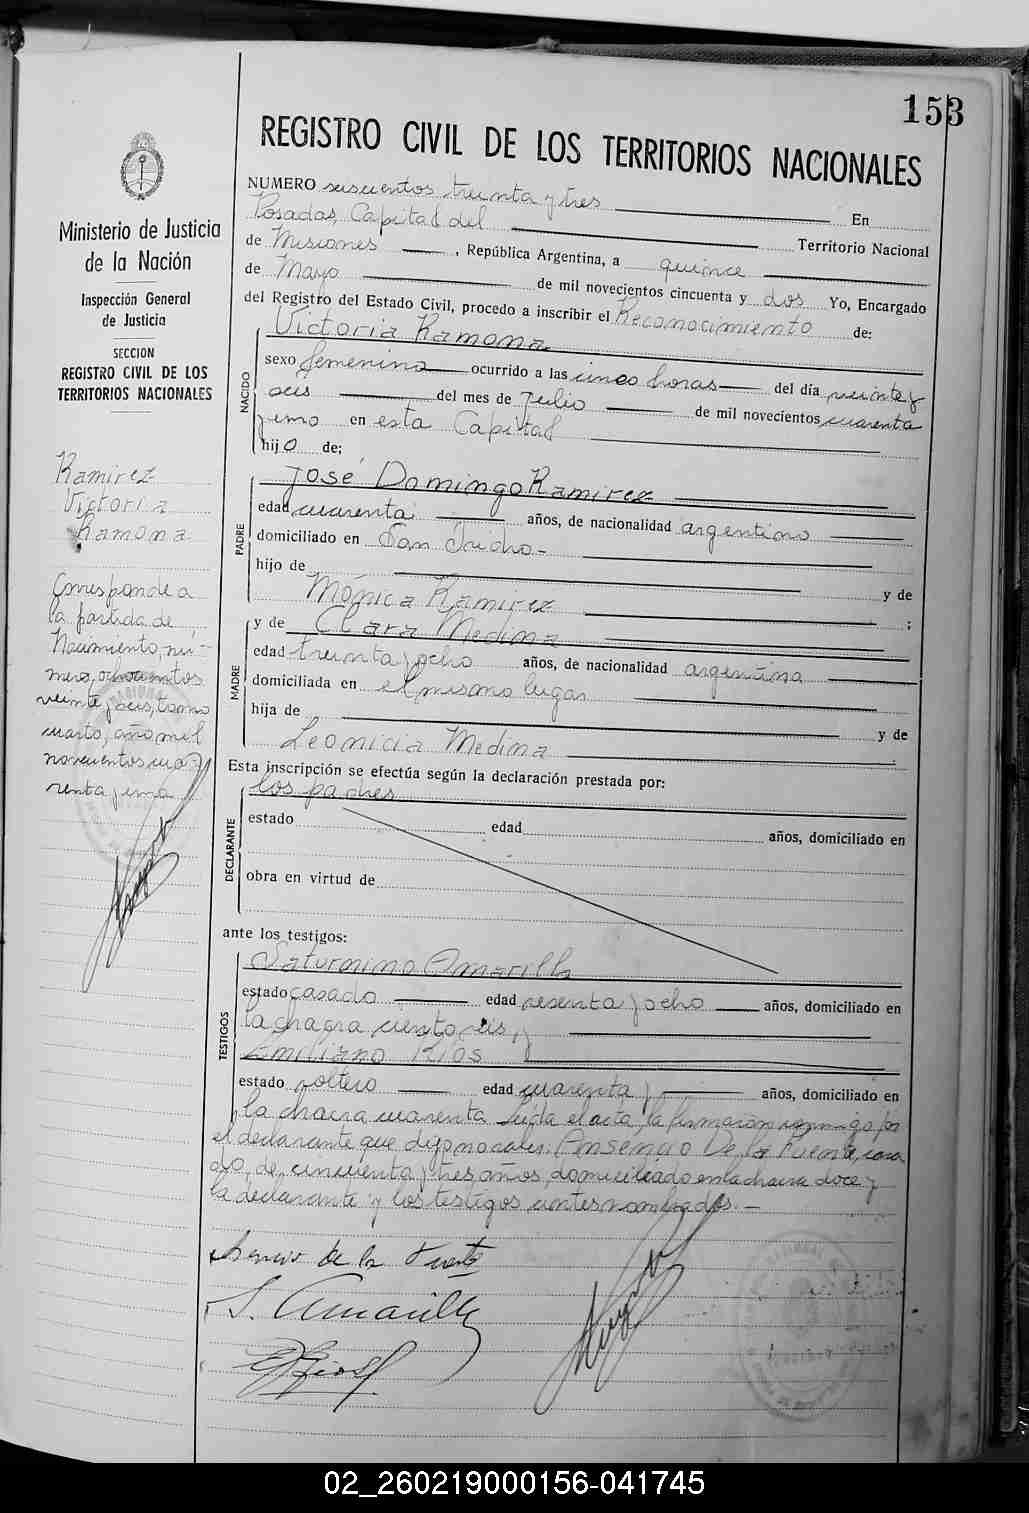 153
REGISTRO CIVIL DE LOS TERRITORIOS NACIONALES
Ministerio de Justicia
de la Nación
Inspección General
de Justicia
SECCION
REGISTRO CIVIL DE LOS
TERRITORIOS NACIONALES
Ramirez
Victoria
Ramona
Corresponde a
la partida de
Nacimiento, nú-
mero, ochocientos
veinte y seis, tomo
cuarto, año mil
novecientos cua-
renta y uno
NUMERO seiscientos treinta y tres En
Posadas, Capital del Territorio Nacional
de Misiones, República Argentina, a quince
de Mayo de mil novecientos cincuenta y dos Yo, Encargado
del Registro del Estado Civil, procedo a inscribir el Reconocimiento de:
NACIDO
Victoria Ramona
sexo femenino ocurrido a las cinco horas del día veinte y
seis del mes de Julio de mil novecientos cuarenta
y uno en esta Capital
hijo de:
PADRE
José Domingo Ramirez
edad cuarenta años, de nacionalidad argentino
domiciliado en San
hijo de
Mónica Ramirez y de
MADRE
y de Clara Medina ;
edad treinta y ocho años, de nacionalidad argentina
domiciliada en el mismo lugar
hija de y de
Leonicia Medina
Esta inscripción se efectúa según la declaración prestada por:
DECLARANTE
los padres
estado edad años, domiciliado en
obra en virtud de
ante los testigos:
TESTIGOS
Saturnino Amarilla
estado casado edad sesenta y ocho años, domiciliado en
la chacra ciento seis y
Emiliano Rios
estado soltero edad cuarenta y años, domiciliado en
la chacra cuarenta. Leída el acta, la firmaron conmigo por
el declarante que dijo no saber, Ansencio De la Fuente, casa
do, de cincuenta y tres años, domiciliado en la chacra doce y
la declarante y los testigos antes nombrados.—
de la Fuente
S. Amarilla
E Rios
02_260219000156-041745